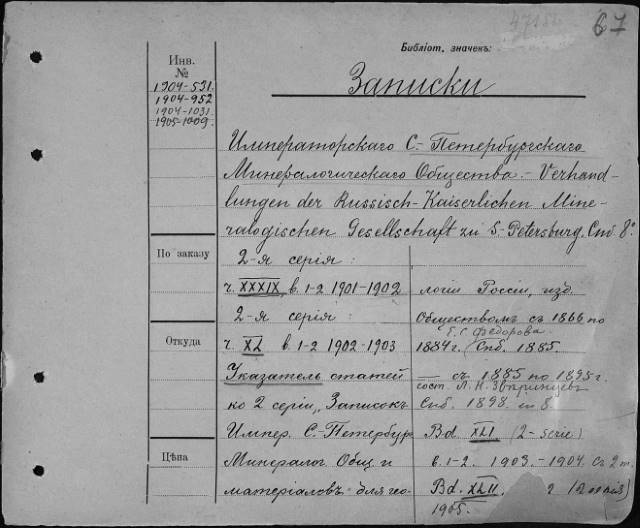 67
Библіот. значекъ:
Инв.
№
1904-531
1904-952
1904-1031
1905-1009
Записки
Императорскаго С.-Петербургскаго
Минералогическаго Общества.- Verhand-
lungen der Russisch-Kaiserlichen Mine-
ralogischen Gesellschaft zu S-Petersburg. Спб 8°
По заказу
Откуда
Цѣна
2-я серія:
ч. XXXIX, в. 1-2 1901-1902
2-я серія:
ч. XL в. 1-2 1902-1903
Указатель статей
ко 2 серіи „Записокъ
Импер. С.-Петербур
Минералог. Общ. и
матеріаловъ для гео-
логіи Россіи, изд.
Обществомъ съ 1866 по
Е. С. Федорова
1884 г. Спб. 1885.
— съ 1885 по 1895 г.
сост. Л. Н. Звѣринцев
Спб. 1898. in 8.
Bd. XLI (2-serie)
в. 1-2. 1903.-1904. Съ 2 т.
Bd. XLII. 2
1905.